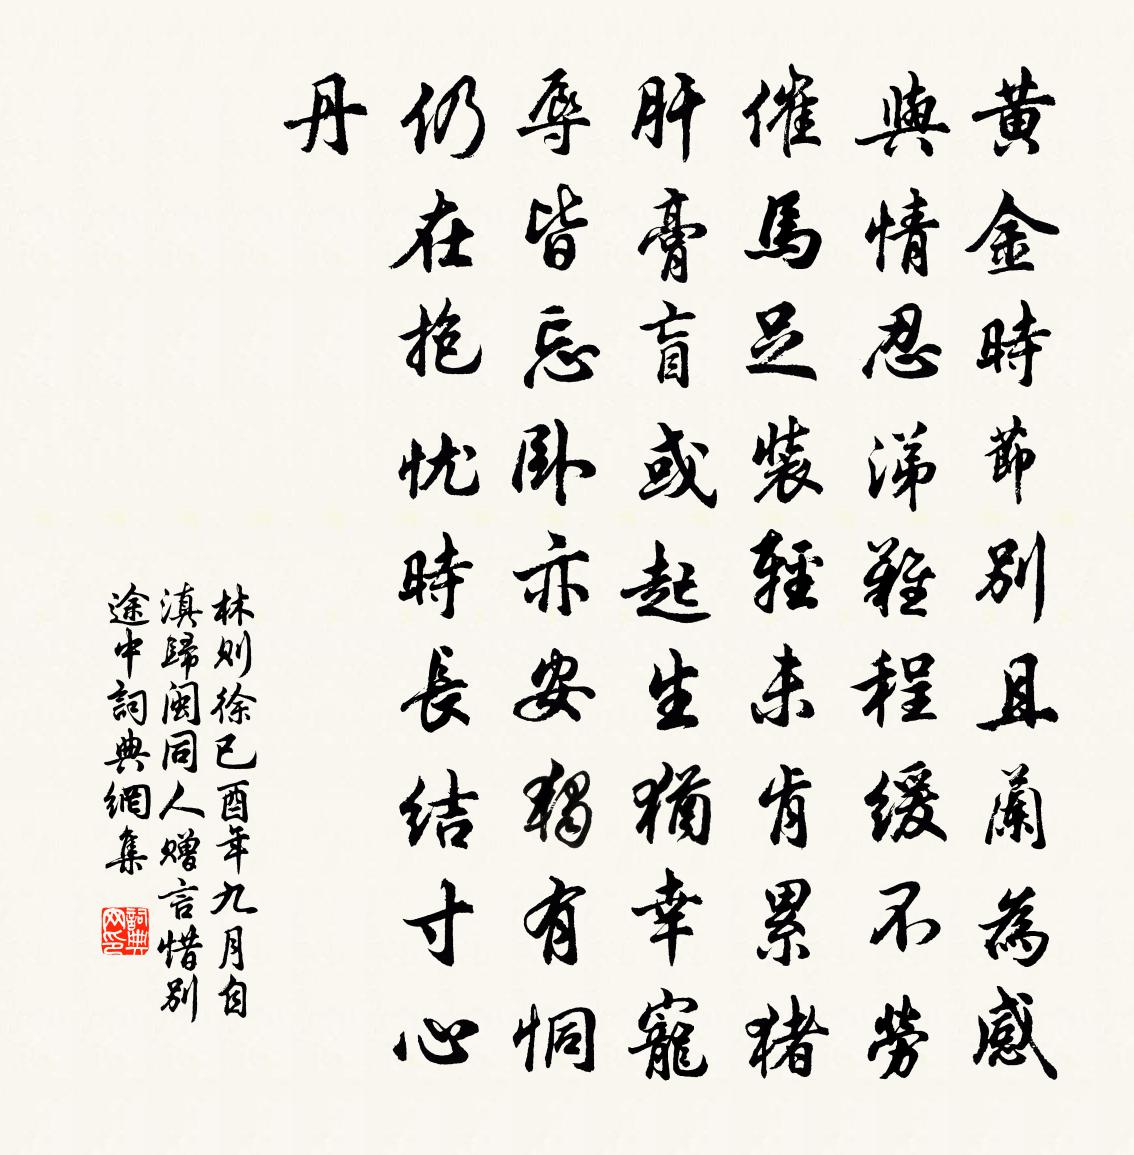 黄金時節別且蘭為感
輿情忍涕難程緩不勞
催馬足裝輕未肯累猪
肝膏盲或起生猶幸寵
辱皆忘卧亦安獨有恫
仍在抱忧時長結寸心
丹
林则徐己酉年九月自
滇歸闽同人赠言惜别
途中詞典網集
詞典
网印